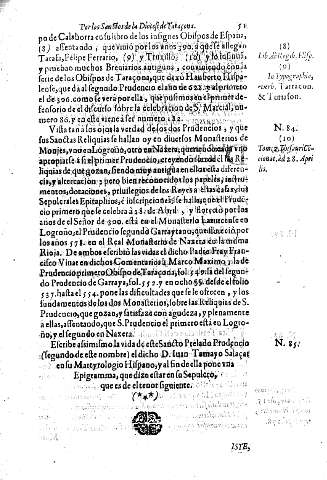 Por los Santos de la Diocesi de Taraçona. 51
po de Calaborra en su libro de los insignes Obispos de España,
(8) assentando, que vivió por los años 390. a que se allegan
Tarafa, Felipe Ferrario, (9) y Truxillo, (10) y lo insinuà,
y prueban muchos Breviarios antiguos, conviniendo con la
serie de los Obispos de Taraçona, que da a Humberto Hispa-
lense, que da al segundo Prudencio el año de 622. y al primero
el de 300. como se verá por ella, que pusimos en el primer de-
fensorio ó el discurso sobre la celebracion de S. Marcial, num.
86. y en esta viene à ser num. 182.
Vista tan à los ojos la verdad de los dos Prudencios, y que
sus Santas Reliquias se hallan oy en diversos Monasterios de
Monjes, vno en Logroño, otro en Naxera, queriendo cada vno
apropiarse à si el primer Prudencio, creyendo suyas las Re-
liquias de que gozan, siendo muy antigua en ellos esta diferen-
cia, y altercacion; pero bien reconocidos los papeles, instru-
mentos, dotaciones, privilegios de los Reyes a estas casas, y sus
Sepulcrales Epitaphios, è inscripciones, se halla, que el Pruden-
cio primero que se celebra à 28. de Abril, y floreció por los
años de el Señor de 300. està en el Monasterio Laturcense de
Logroño; el Prudencio segundo Garraytano, que floreció por
los años 578. en el Real Monasterio de Naxera en la misma
Rioja. De ambos escribió las vidas el dicho Padre Fray Fran-
cisco Vivar en dichos Comentarios à Marco Maximo; la de
Prudencio primero Obispo de Taraçona, fol. 549. la del segun-
do Prudencio de Garraya, fol. 552. y en ocho §§. desde el folio
537. hasta el 554. pone las dificultades que se le ofrecen, y los
fundamentos de los dos Monasterios, sobre las Reliquias de S.
Prudencio, que gozan, y satisfaze con agudeza, y plenamente
à ellas, assentando, que S. Prudencio el primero està en Logro-
ño, y el segundo en Naxera.
Escribe assimismo la vida de este Santo Prelado Prudencio
(segundo de este nombre) el dicho D. Iuan Tamayo Salaçar
en su Martyrologio Hispano, y al fin de ella pone vna
Epigramma, que dize estar en su Sepulcro,
que es de el tenor siguiente.
(***)
ISTE,
(8)
Lib. de Regib. Hisp.
(9)
In Typographie,
verb. Tarracon.
& Turiason.
N. 84.
(10)
Tom. 2. Thesauri Con-
cionat. ad 28. Apri-
lis.
N. 85.